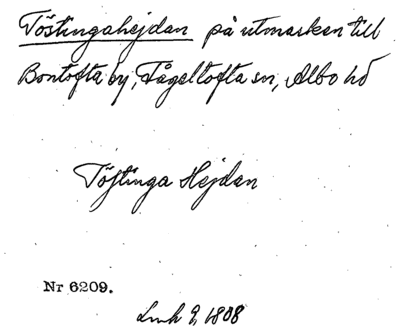 Töstingahejdan på utmarken till
Bontofta by, Fågeltofta sn, Albo hd
Töstinga Hejdan
Nr 6209.
Lmh 9, 1808